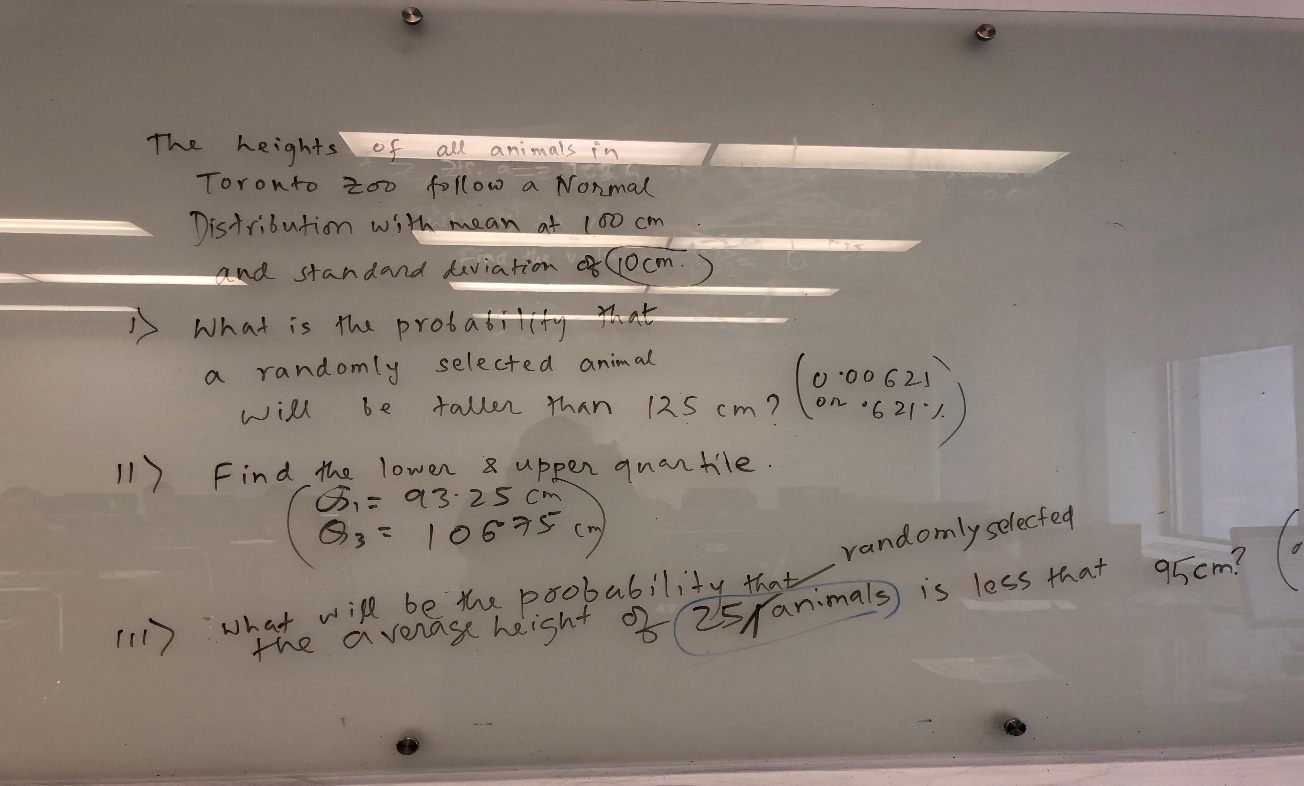 The heights of all animals in
Toronto Zoo follow a Normal
Distribution with mean at 100 cm
and standard deviation of 10cm.
I> What is the probability that
a randomly selected animal
will be taller than 125 cm? (0.00621
or .621%)
II> Find the lower & upper quartile.
(Q1 = 93.25 cm
Q3 = 106.75 cm)
randomly selected
III> What will be the probability that
the average height of 25 animals is less that 95cm? (